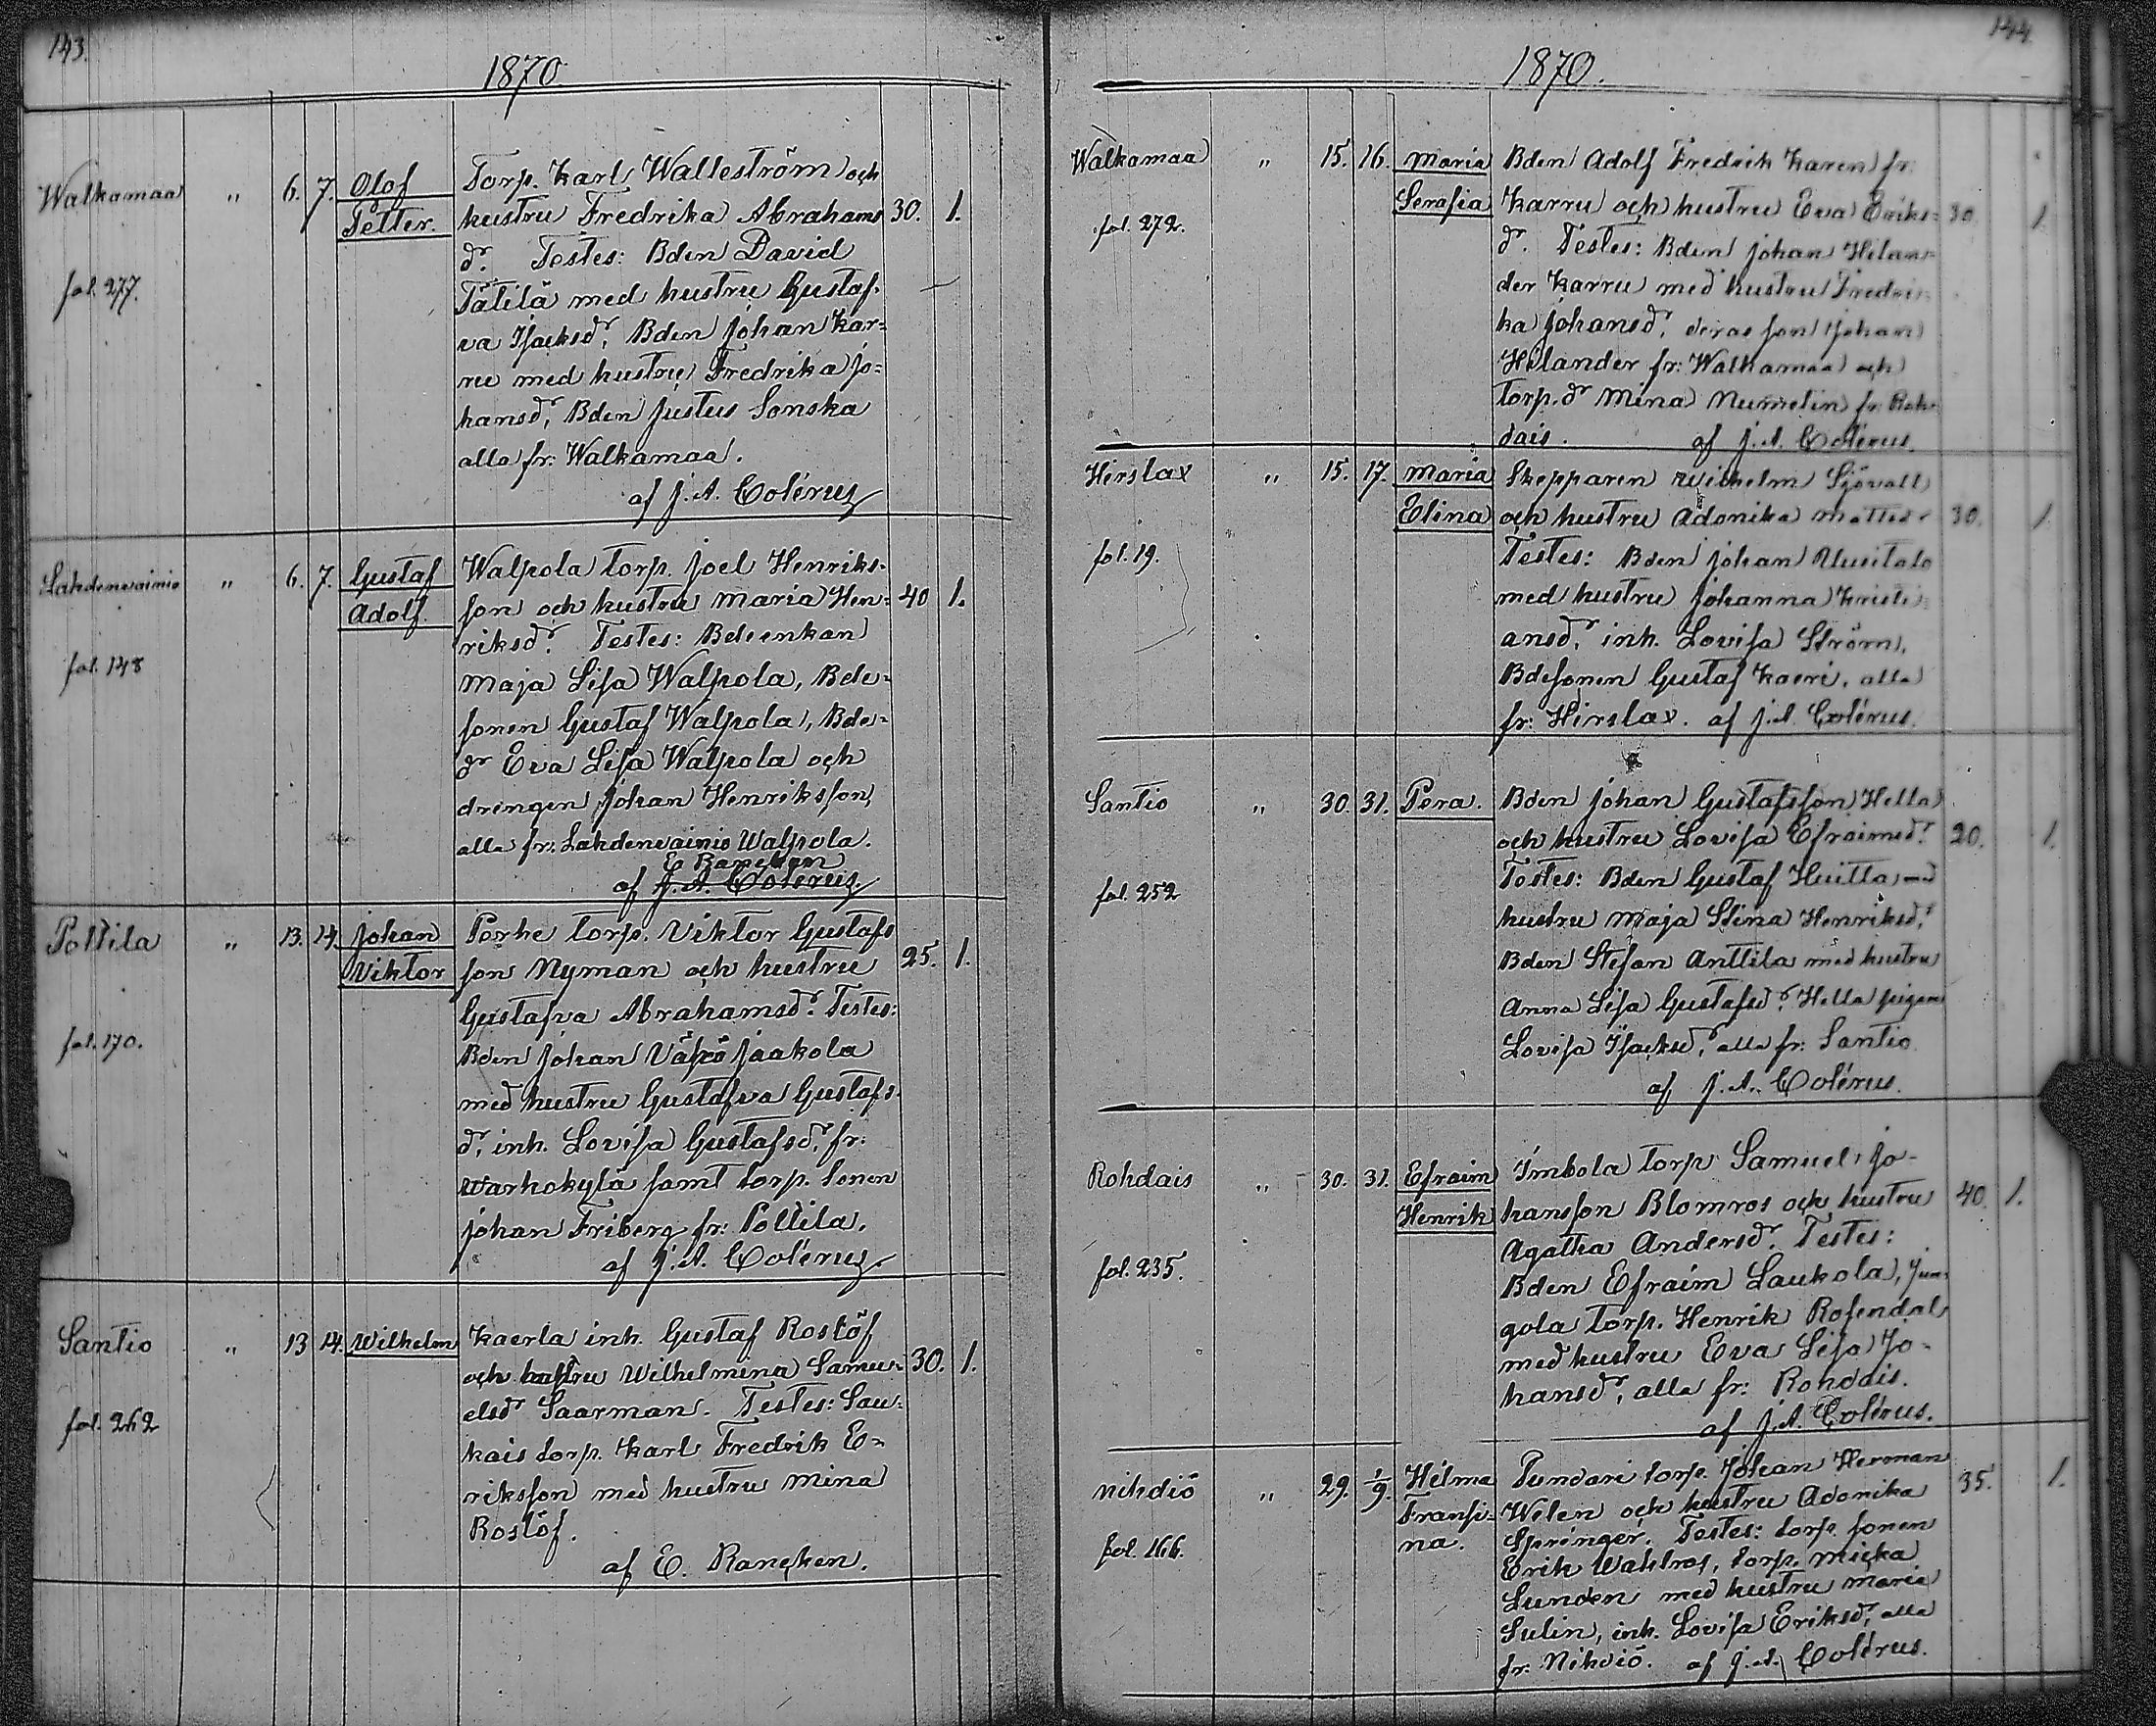 143.
1870.
Walkamaa " 6. 7. Olof Petter. fol. 277.
Torp. Karl Walleström och
hustru Fredrika Abrahams 30. 1.
dr. Testes: Bden David
Tätilä med hustru Gustaf-
va Isacksdr, Bden Johan Kar-
ru med hustru Fredrika Jo-
hansdr, Bden Justus Sonska
alla fr: Walkamaa.
af J. A. Colérus
Lahdenwainio " 6. 7. Gustaf Adolf. fol. 148
Walpola torp. Joel Henriks-
son och hustru Maria Hen- 40 1.
riksdr. Testes: Bdeenkan
Maja Lisa Walpola, Bde-
sonen Gustaf Walpola, Bde-
dr Eva Lisa Walpola och
drengen Johan Henriksson,
alla fr: Lahdenwainio Walpola.
E. Rancken
af J. A. Colérus.
Poltila " 13. 14. Johan Viktor fol. 170.
Perhe torp. Viktor Gustafs
son Nyman och hustru 25. 1.
Gustafva Abrahamsdr. Testes:
Bden Johan Vähä Jaakola
med hustru Gustafva Gustafs-
dr, inh. Lovisa Gustafsdr, fr:
Warhokylä samt torp. sonen
Johan Friberg fr: Poltila.
af J. A. Colérus.
Santio " 13 14. Wilhelm fol. 262
Kaerla inh. Gustaf Roslöf
och hustru Wilhelmina Samu- 30. 1.
elsdr Saarman. Testes: Lau-
kais torp. Karl Fredrik E-
riksson med hustru Mina
Roslöf.
af E. Rancken.
144.
1870.
Walkamaa " 15. 16. Maria Serafia fol. 272.
Bden Adolf Fredrik Karen fr:
Karru och hustru Eva Eriks- 30. 1
dr. Testes: Bden Johan Helan-
der Karru med hustru Fredri-
ka Johansdr, deras son Johan
Helander fr: Walkamaa och
torp. dr Mina Numelin fr: Roh-
dais. af J. A. Colérus.
Hirslax " 15. 17. Maria Elina fol. 19.
Skepparen Wilhelm Sjövall
och hustru Adonika Mattsdr 30. 1
Testes: Bden Johan Uusitalo
med hustru Johanna Kristi-
ansdr, inh. Lovisa Ström,
Bdesonen Gustaf Kaeri, alla
fr: Hirslax. af J. A. Colérus.
Santio " 30. 31. Pera. fol. 252
Bden Johan Gustafsson Hella
och hustru Lovisa Efraimsdr. 20. 1.
Testes: Bden Gustaf Huitta med
hustru Maja Stina Henriksdr,
Bden Stefan Anttila med hustru
Anna Lisa Gustafsdr, Hella pigan
Lovisa Isacksdr, alla fr: Santio
af J. A. Colérus.
Rohdais " 30. 31. Efraim Henrik fol. 235.
Imbola torp. Samuel Jo-
hansson Blomros och hustru 40. 1.
Agatha Andersdr. Testes:
Bden Efraim Laukola, Jun-
gola torp. Henrik Rosendal
med hustru Eva Lisa Jo-
hansdr, alla fr: Rohdais.
af J. A. Colérus.
Nihdiö " 29. 1/9. Hilma Fransi-na. fol. 166.
Pundari torp. Johan Herman
Welen och hustru Adonika 35. 1.
Springer. Testes: torp. sonen
Erik Wahlros, torp. Micka
Lunden med hustru Maria
Sulin, inh. Lovisa Eriksdr, alla
fr: Nihdiö. af J. A. Colérus.